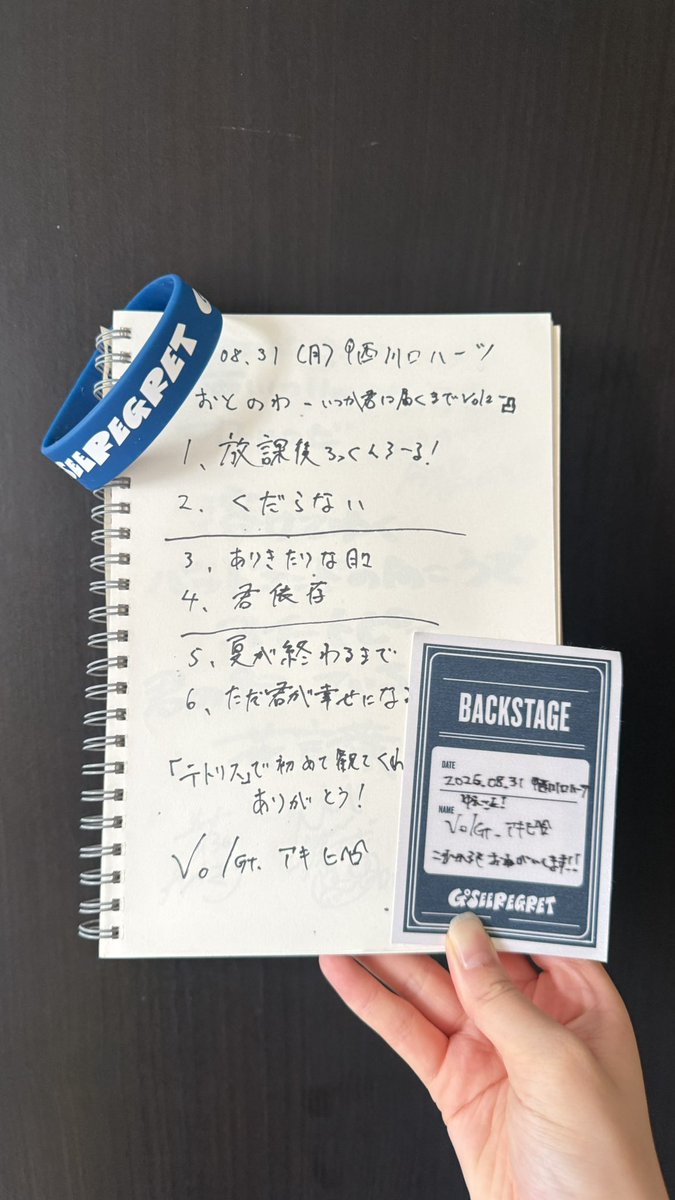 GOSEEREGRET
08.31 (月) 西川口ハーツ
おとのわ - いつか君に届くまで vol2-
1、放課後ろっくんろーる!
2. くだらない
3、ありきたりな日々
4、君依存
5、夏が終わるまで
6、ただ君が幸せになる
「テトリス」で初めて観てくれ
ありがとう!
Vo/Gt. アキヒ
BACKSTAGE
DATE
2026.08.31 西川口ハーツ
NAME
Vo/Gt. アキヒ
これからもお願いします!!
GOSEEREGRET